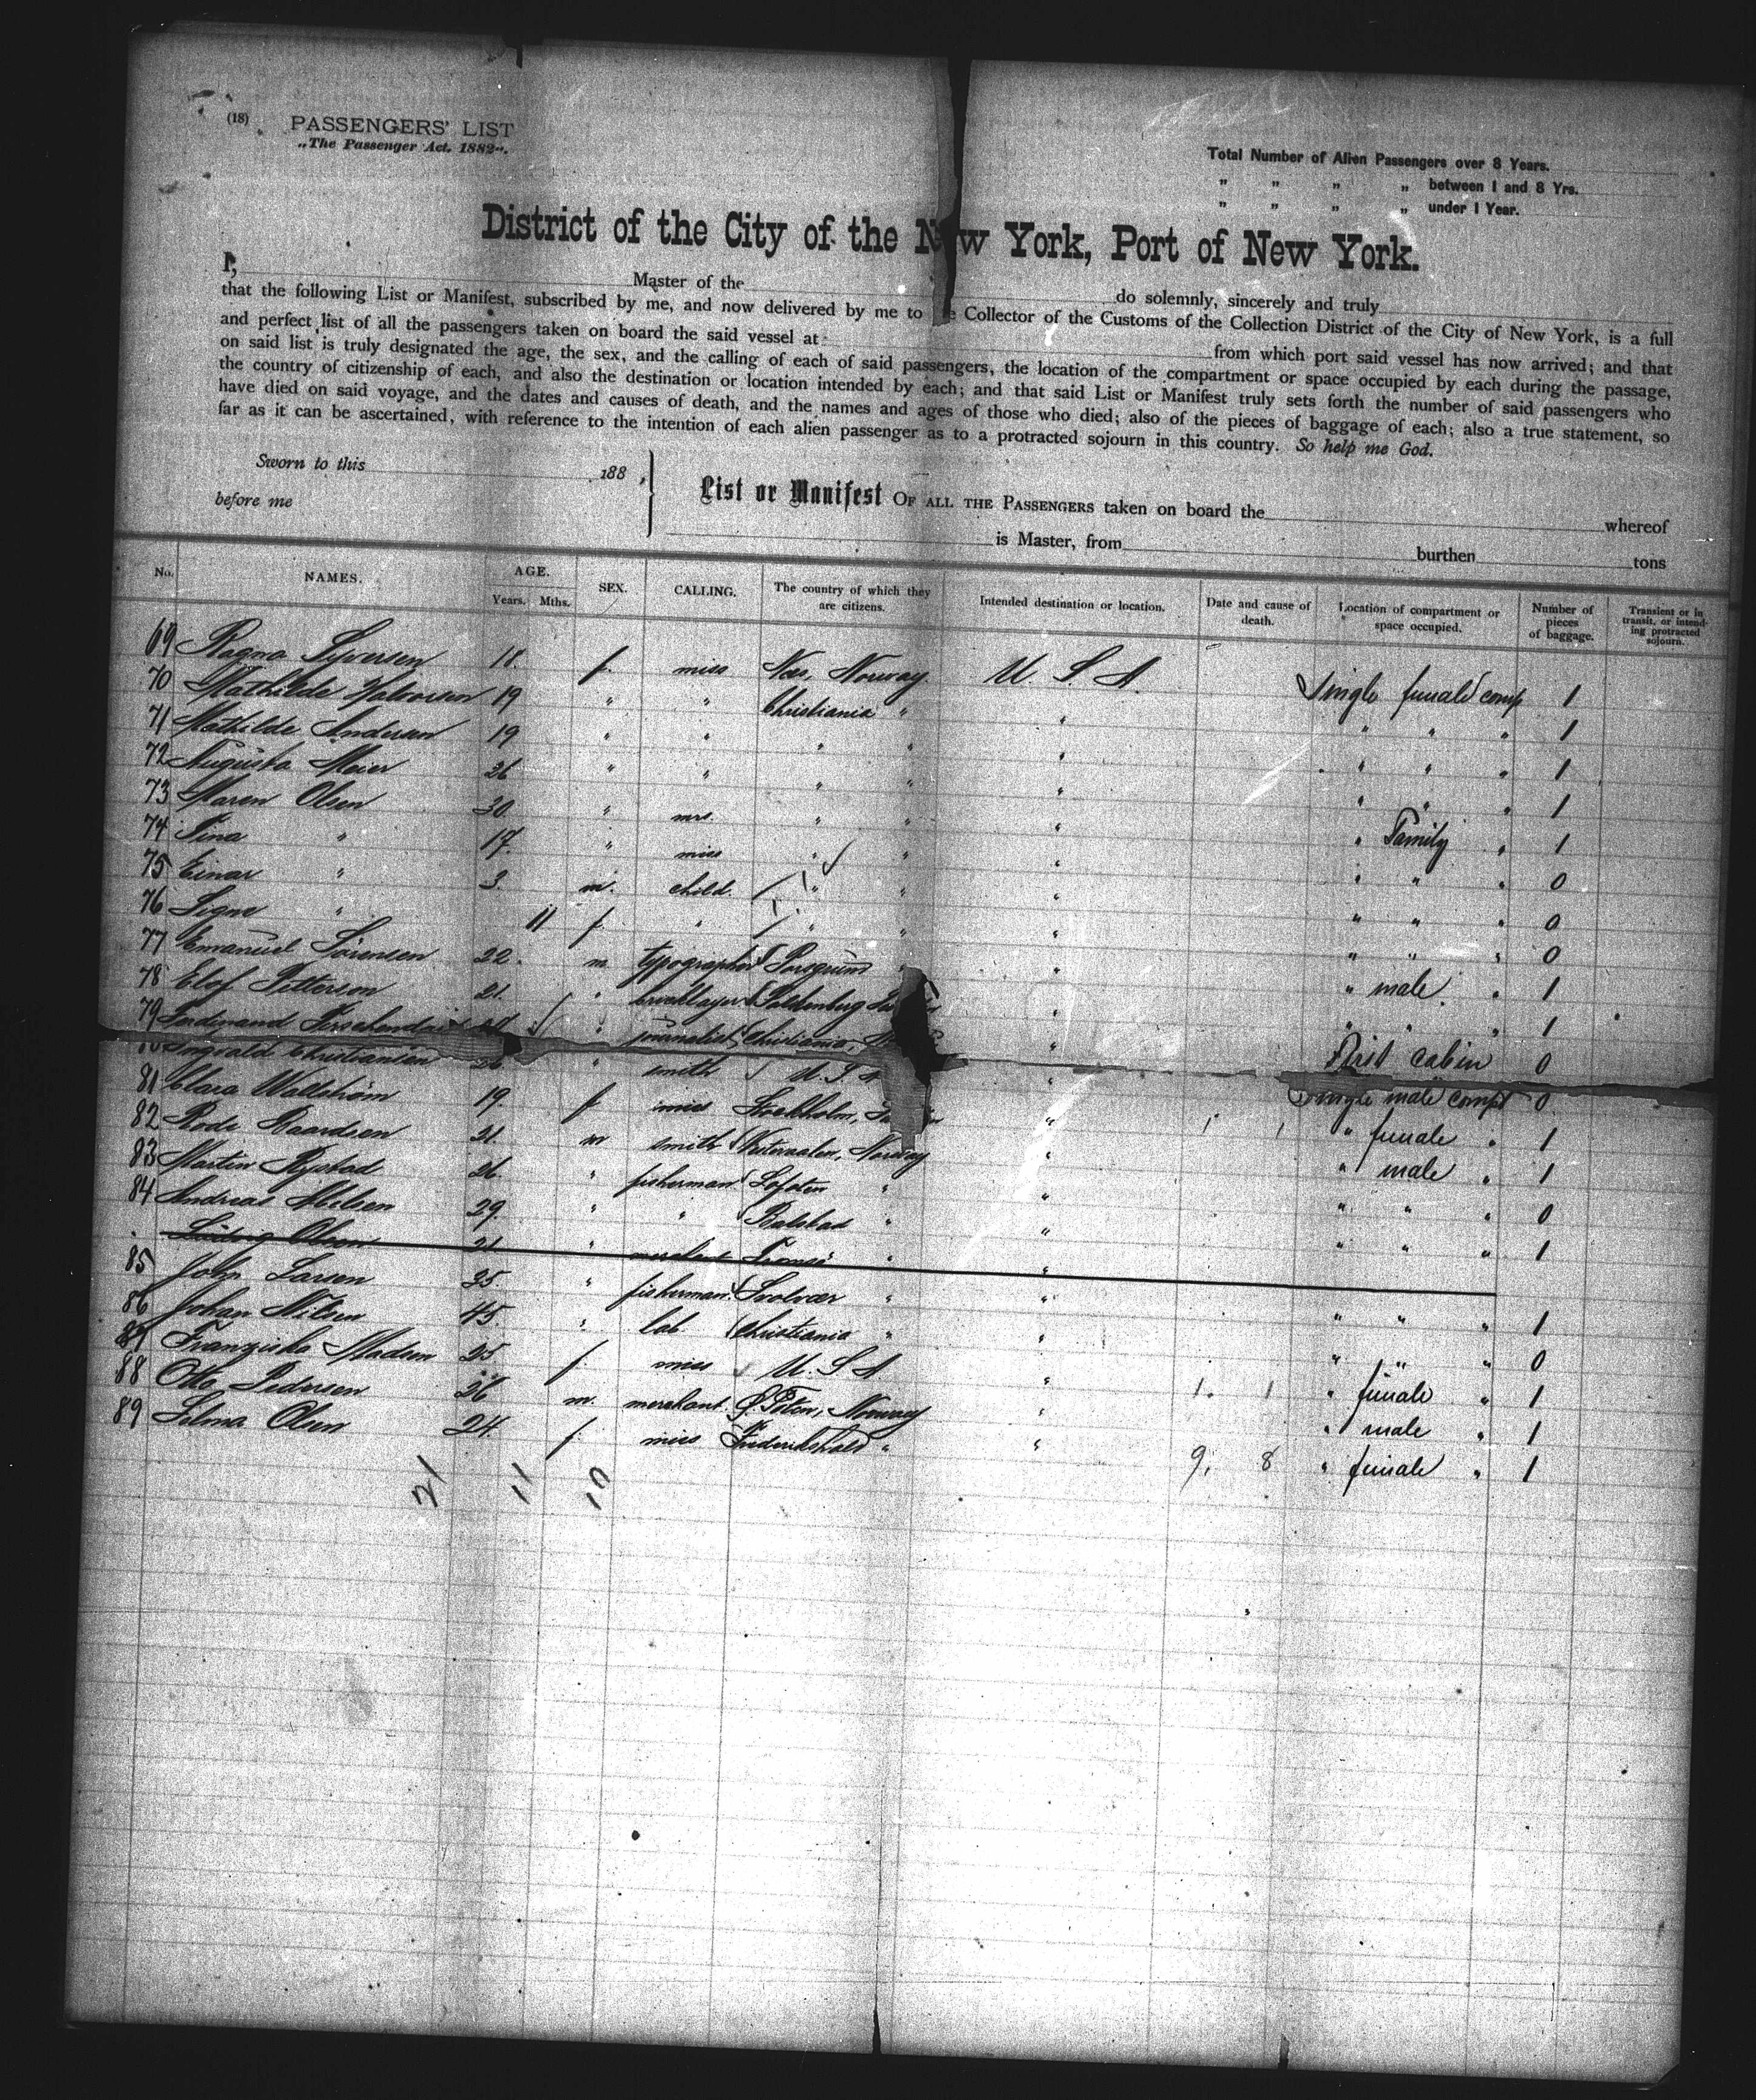 (18) PASSENGERS' LIST
„The Passenger Act. 1882".
Total Number of Alien Passengers over 8 Years.
„ „ „ „ between 1 and 8 Yrs.
„ „ „ „ under 1 Year.
District of the City of the New York, Port of New York.
I, Master of the do solemnly, sincerely and truly
that the following List or Manifest, subscribed by me, and now delivered by me to the Collector of the Customs of the Collection District of the City of New York, is a full
and perfect list of all the passengers taken on board the said vessel at from which port said vessel has now arrived; and that
on said list is truly designated the age, the sex, and the calling of each of said passengers, the location of the compartment or space occupied by each during the passage,
the country of citizenship of each, and also the destination or location intended by each; and that said List or Manifest truly sets forth the number of said passengers who
have died on said voyage, and the dates and causes of death, and the names and ages of those who died; also of the pieces of baggage of each; also a true statement, so
far as it can be ascertained, with reference to the intention of each alien passenger as to a protracted sojourn in this country. So help me God.
Sworn to this 188 ,
before me
List or Manifest OF ALL THE PASSENGERS taken on board the whereof
is Master, from burthen tons
No. NAMES. AGE. Years. Mths. SEX. CALLING. The country of which they are citizens. Intended destination or location. Date and cause of death. Location of compartment or space occupied. Number of pieces of baggage. Transient or in transit, or intending protracted sojourn.
69 Ragna Syversen 18. f. miss Nes, Norway U. S. A. Single female comp 1
70 Mathilde Halvorsen 19 " " Christiania " " " " " 1
71 Mathilde Andersen 19 " " " " " " " " 1
72 Augusta Meier 26 " " " " " " " " 1
73 Maren Olsen 30. " mrs. " " " " Family " 1
74 Tina " 17. " miss " " " " " " 0
75 Einar " 3. m. child " " " " " " 0
76 Signe " 11 f. " " " " " " " 0
77 Emanuel Sörensen 22. m typographer Porsgrund " " " male " 1
78 Elof Petterson 21. " bricklayer Falkenberg " " " " 1
79 Ferdinand " journalist Christiania, " First cabin 0
Christiansen 26 " smith U. S. A " Single male compt 0
81 Clara Wallström 19. f miss Stockholm, " " female " 1
82 21. m smith Vesteraalen, Norway " " male " 1
83 Martin Rystad 26. " fisherman Lofoten " " " " " 0
84 Andreas 29. " " Balstad " " " " " 1
Ludvig Olsen 21 " merchant Tromsö " "
85 John Larsen 35. " fisherman Svolvær " " " " " 1
86 Johan Nilsen 45. " lab. Christiania " " " " " 0
87 Franziska Madsen 25. f. miss U. S. A " 1. 1 " female " 1
88 Otto Pedersen 26 m. merchant Ö. Toten, Norway " " male " 1
89 Selma Olsen 24. f. miss Frederikshald " " 9. 8 " female " 1
21 11 10